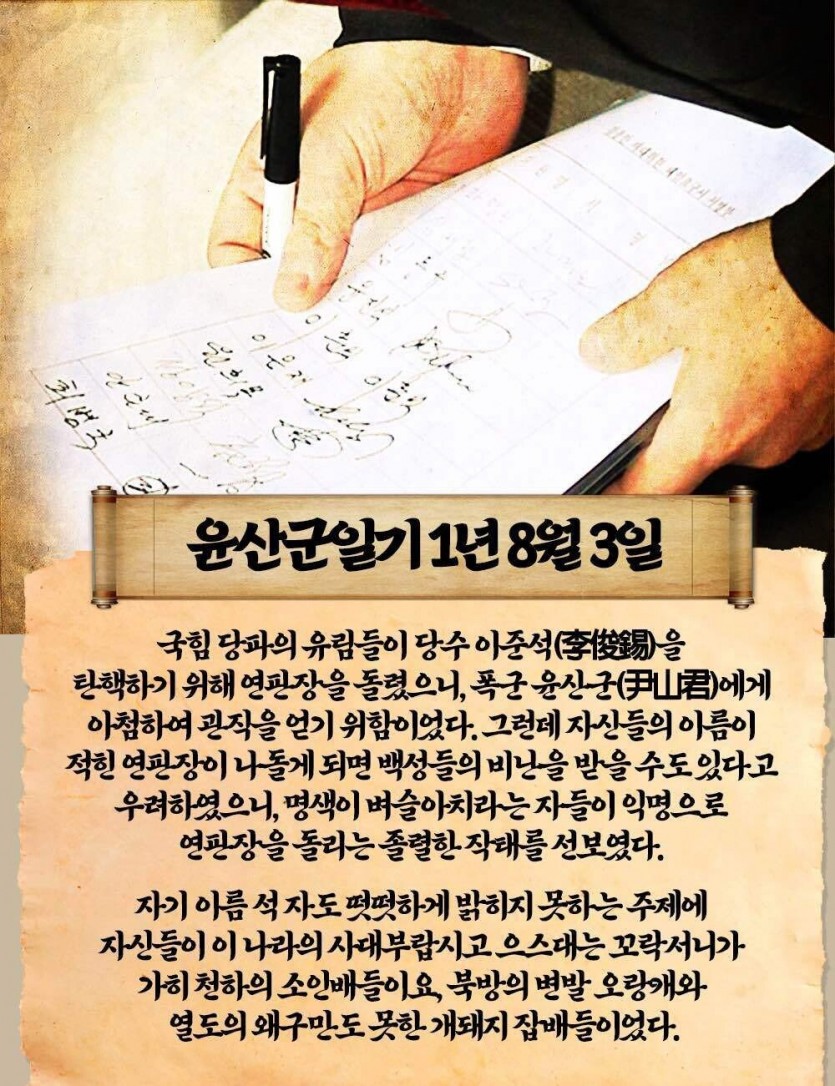 윤산군일기 1년 8월 3일
국힘 당파의 유림들이 당수 이준석(李俊錫)을
탄핵하기 위해 연판장을 돌렸으니, 폭군 윤산군(尹山君)에게
아첨하여 관직을 얻기 위함이었다. 그런데 자신들의 이름이
적힌 연판장이 나돌게 되면 백성들의 비난을 받을 수도 있다고
우려하였으니, 명색이 벼슬아치라는 자들이 익명으로
연판장을 돌리는 졸렬한 작태를 선보였다.
자기 이름 석 자도 떳떳하게 밝히지 못하는 주제에
자신들이 이 나라의 사대부랍시고 으스대는 꼬락서니가
가히 천하의 소인배들이요, 북방의 변발 오랑캐와
열도의 왜구만도 못한 개돼지 잡배들이었다.